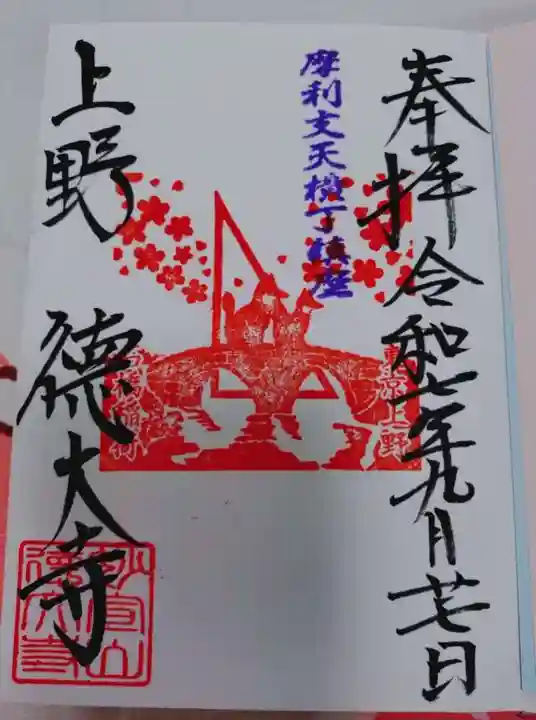 奉拝 令和七年九月廿七日
摩利支天横丁鎮座
東京上野
上野 德大寺